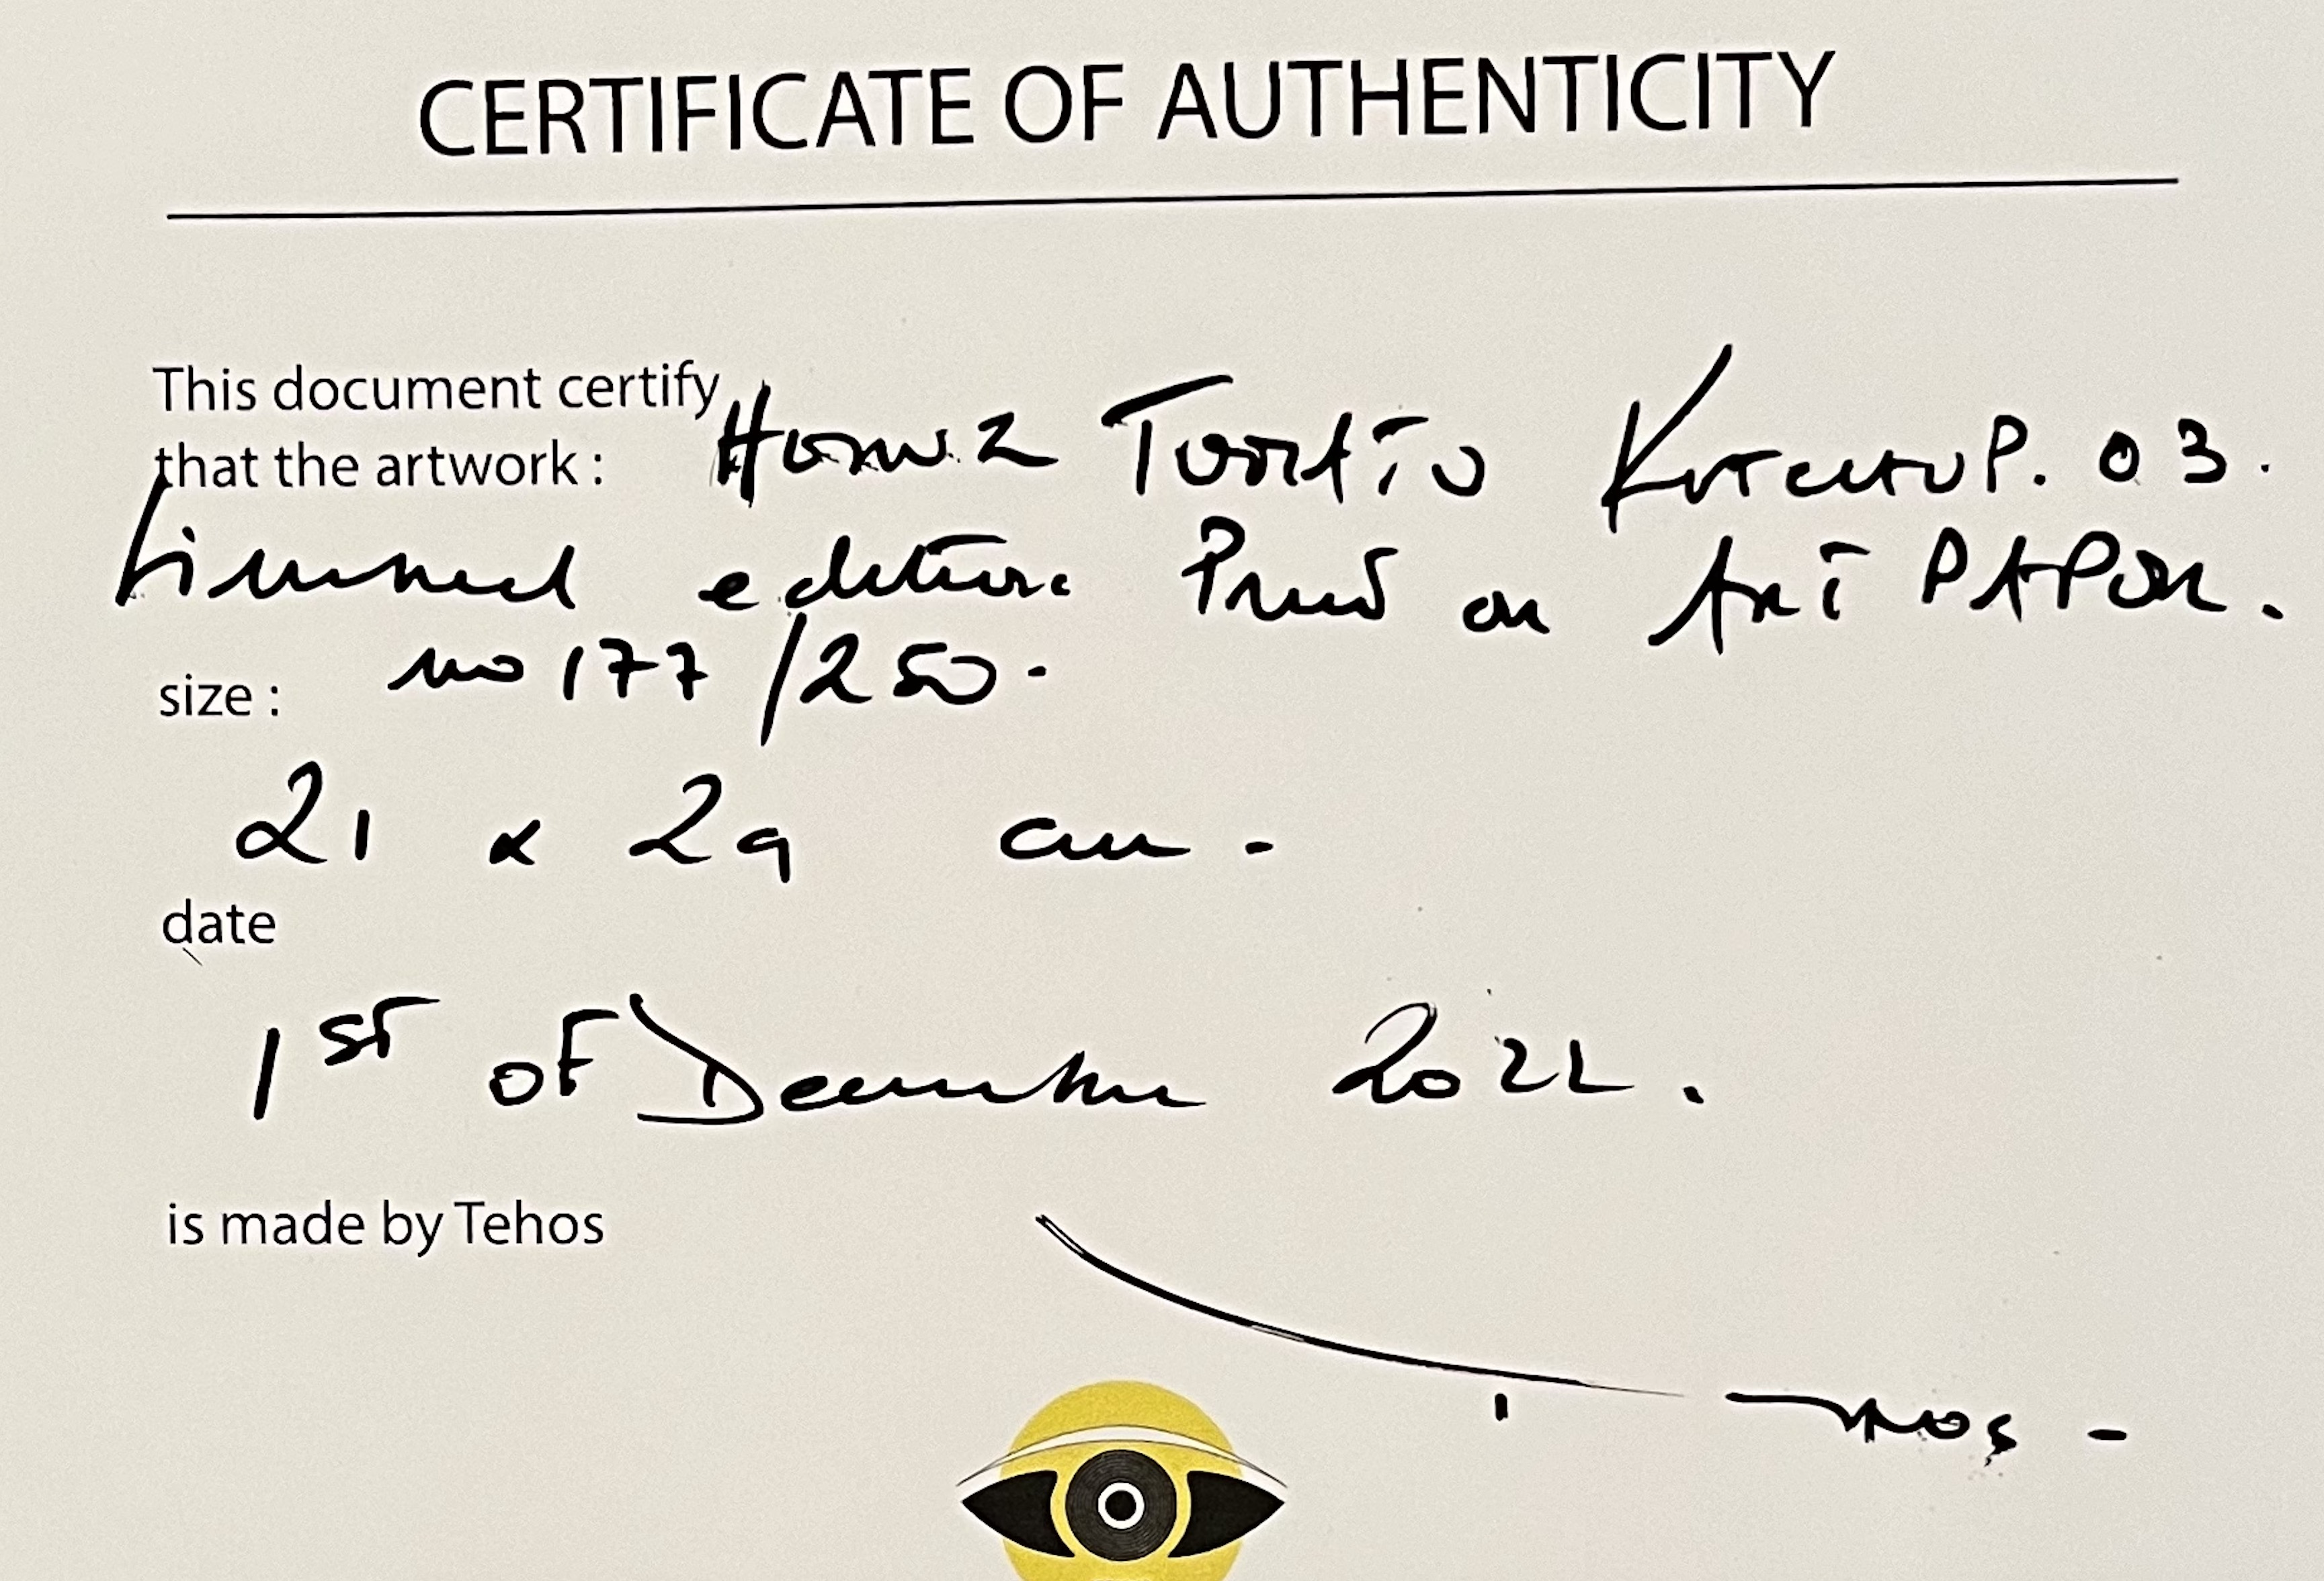 CERTIFICATE OF AUTHENTICITY
This document certify
that the artwork : Heinz Tomato Ketchup. 03.
Limited edition Print on Art Paper.
no 177/250.
size :
21 x 29 cm -
date
1st of December 2022.
is made by Tehos
Tehos -